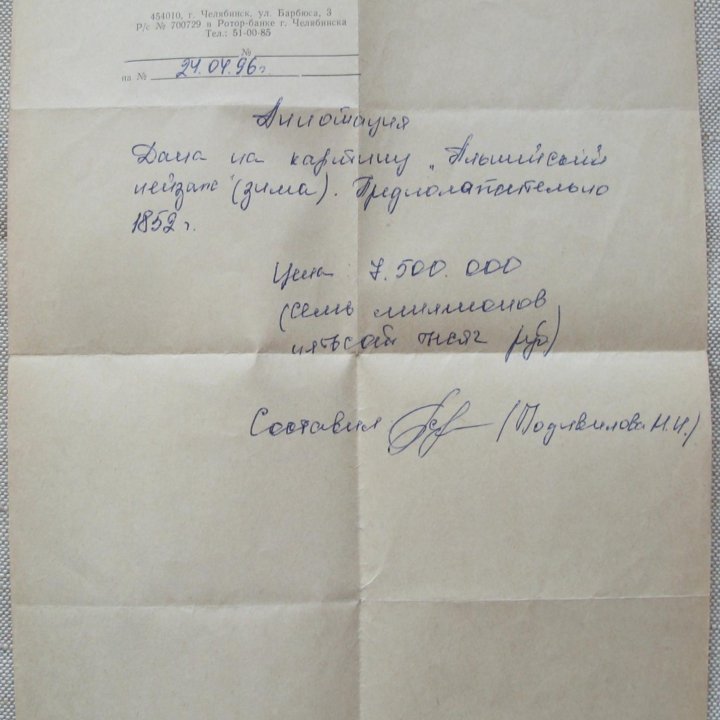 454010, г. Челябинск, ул. Барбюса, 3
Р/с № 700729 в Ротор-банке г. Челябинска
Тел.: 51-00-85
№
на № 24.04.96г.
Аннотация
Дана на картину „Альпийский
пейзаж" (зима). Предположительно
1852 г.
Цена 7.500.000
(семь миллионов
пятьсот тысяч руб)
Составил (Подивилова Н.И.)